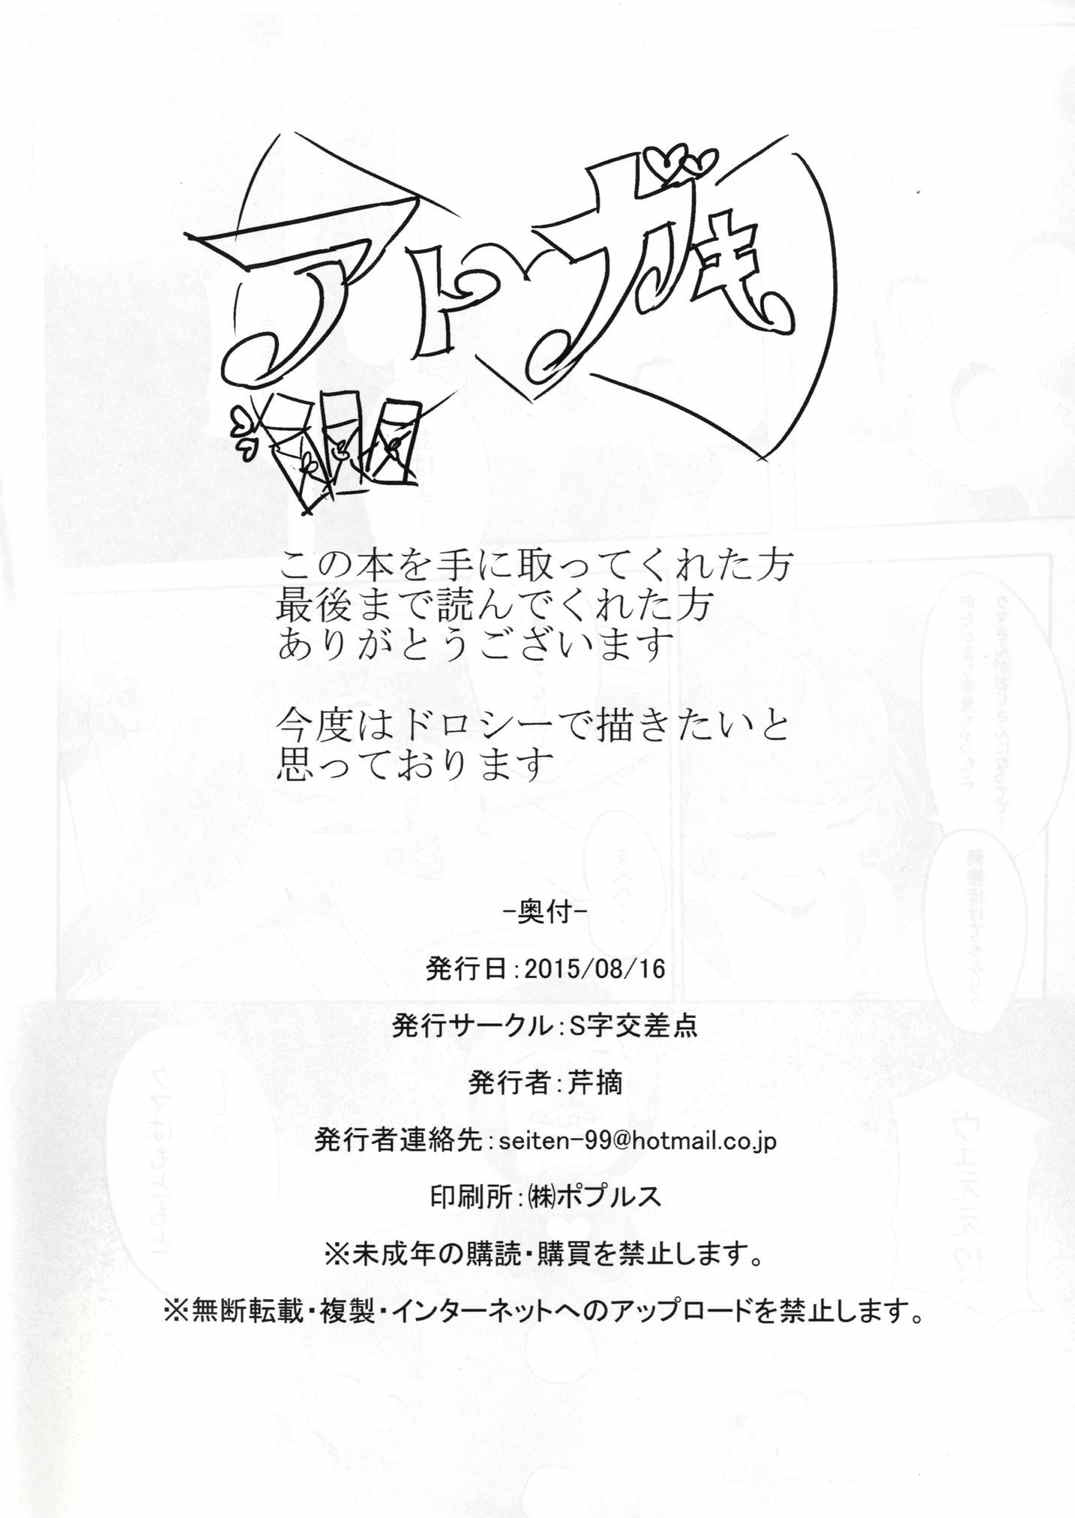 アトガキ
この本を手に取ってくれた方
最後まで読んでくれた方
ありがとうございます
今度はドロシーで描きたいと
思っております
-奥付-
発行日：2015/08/16
発行サークル：S字交差点
発行者：芹摘
発行者連絡先：seiten-99@hotmail.co.jp
印刷所：㈱ポプルス
※未成年の購読・購買を禁止します。
※無断転載・複製・インターネットへのアップロードを禁止します。